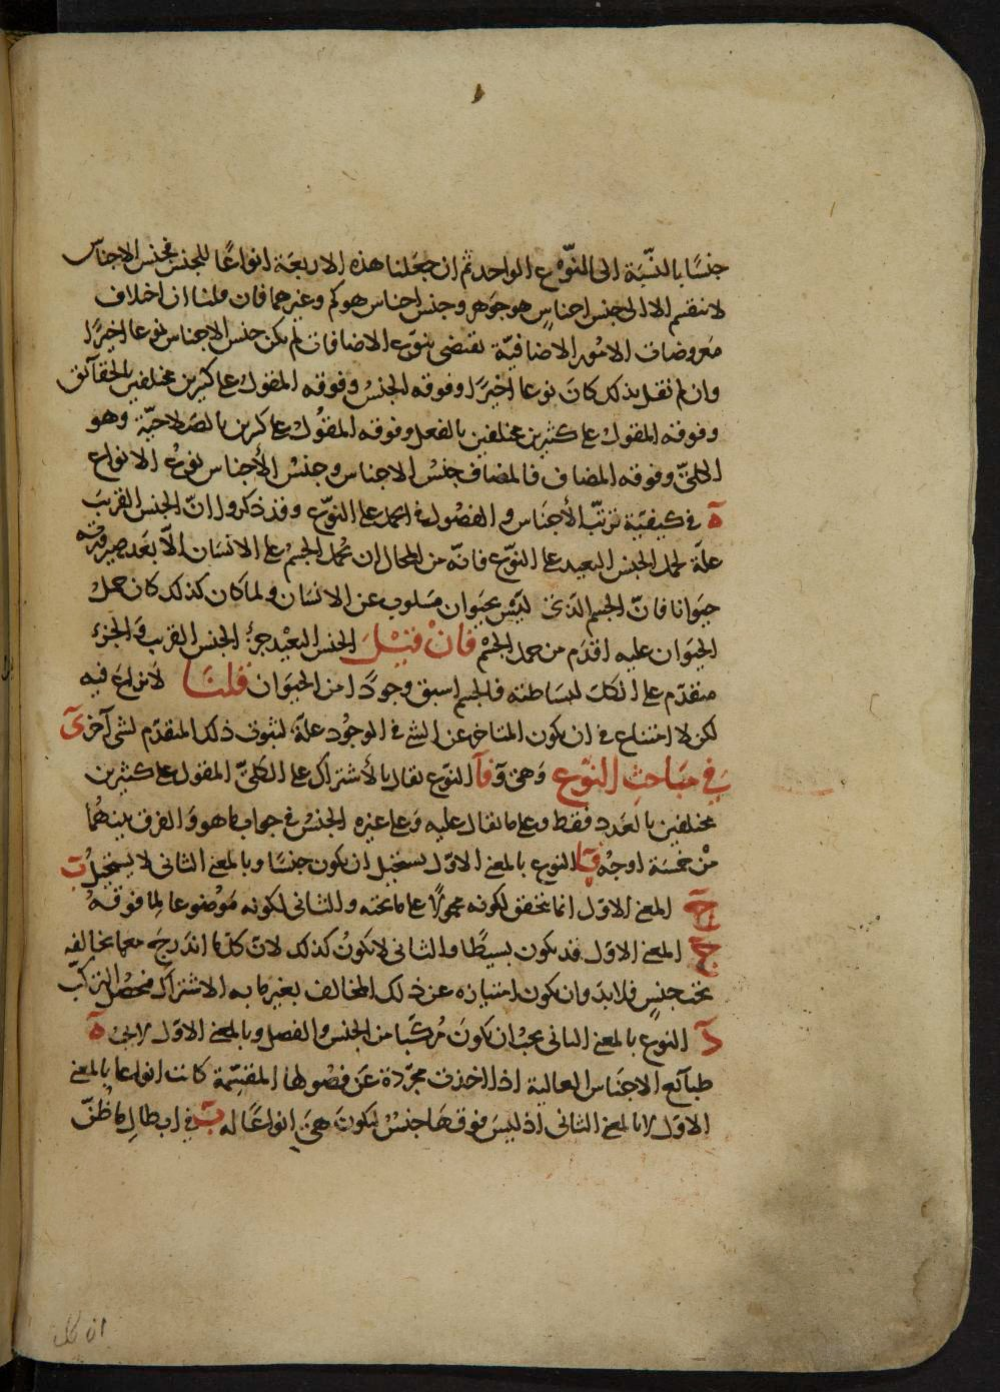 جنسًا بالنسبة الى النوع الواحد ثم ان جعلنا هذه الاربعة انواعًا للجنس فجنس الاجناس
لا ينقسم الا الى جنس اجناسٍ هو جوهر وجنس اجناس هو كم وغيرهما فان قلنا ان اختلاف
معروضات الامور الاضافيّة يقتضى تنوّع الاضافات لم يكن جنس الاجناس نوعا اخيرًا
وان لم نقل بذلك كان نوعا اخيرًا وفوقه الجنس وفوقه المقول على كثيرين مختلفين بالحقآئق
وفوقه المقول على كثيرين مختلفين بالفعل وفوقه المقول على كثيرين بالصلاحيّة وهو
الكلىّ وفوقه المضاف فالمضاف جنس الاجناس وجنس الأجناس نوع الانواع
ه فى كيفيّة ترتّب الأجناس والفصول فى الحمل على النوّع وقد ذكروا انّ الجنس القريب
علّة لحمل الجنس البعيد على النوّع فانّه من المحال ان يحمل الجسم على الانسان الّا بعد صيرورته
حيوانا فانّ الجسم الذى ليس بحيوان مسلوب عن الانسان ولما كان كذلك كان حمل
الحيوان عليه اقدم من حمل الجسم فان قيل الجنس البعيد جزؤ الجنس القريب والجزء
متقدّم على الكل لبساطته فالجسم اسبق وجودًا من الحيوان قلنا لا نزاع فيه
لكن لا امتناع فى ان يكون المتاخر عن الشئ فى الوجود علّة لثبوت ذلك المتقدّم لشئ آخر ىَ
فى مباحث النوّع وهى وَ ا النوّع يقال بالأشتراك على الكلىّ المقول على كثيرين
مختلفين بالعدد فقط وعلى ما يقال عليه وعلى غيره الجنس فى جواب ما هو والفرق بينهما
من خمسة اوجهٍ ا النوع بالمعنى الاوّل يستحيل ان يكون جنسًا وبالمعنى الثانى لا يستحيل ب
المعنى الاوّل انما تحقق لكونه محمولًا على ما تحته والثانى لكونه موضوعا لما فوقه
ج المعنى الاوّل قد يكون بسيطًا والثانى لا يكون كذلك لانّ كل ما اندرج مع ما يخالفه
تحت جنسٍ فلا بدّ وان يكون امتيازه عن ذلك المخالف بغير ما به الاشتراك فيحصل التركّب
د النوع بالمعنى الثانى يجب ان يكون مركّبا من الجنس والفصل وبالمعنى الاوّل لا يجب ه
طبآئع الاجناس العالية اذا اخذت مجرّدة عن فصولها المقسّمة كانت انواعا بالمعنى
الاوّل لا بالمعنى الثانى اذ ليس فوقها جنس ليكون هى انواعًا له ب فى ابطال ما ظنّ
ان كل